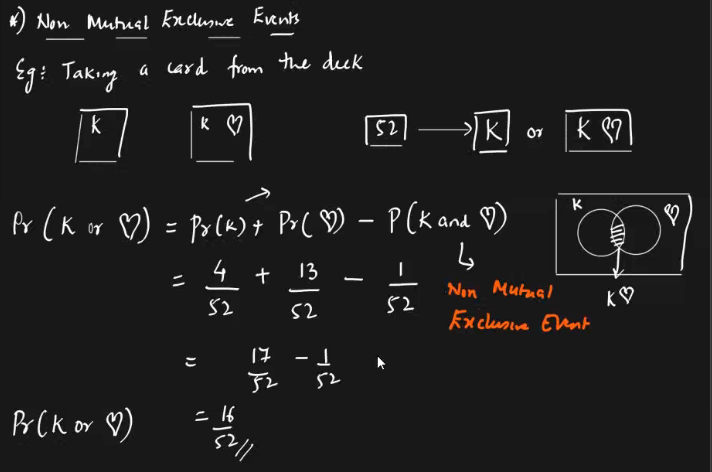 *) Non Mutual Exclusive Events
Eg: Taking a card from the deck
K   K ♡   52 → K or K ♡
Pr (K or ♡) = Pr(K) + Pr(♡) − P(K and ♡)
K ♡
= 4/52 + 13/52 − 1/52
Non Mutual
Exclusive Event
K♡
= 17/52 − 1/52
Pr(K or ♡) = 16/52 //